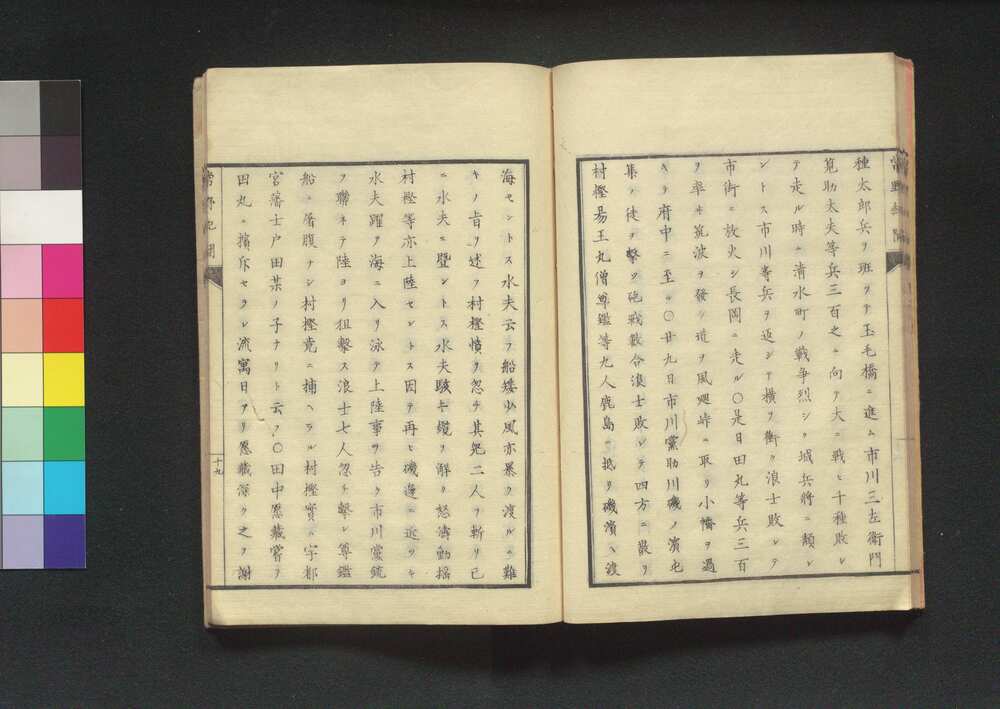 種太郎兵ヲ班ツテ玉毛橋ニ進ム市川三左衛門
筧助太夫等兵三百之ニ向テ大ニ戰ヒ十種敗レ
テ走ル時ニ清水町ノ戰争烈シク城兵將ニ頽レ
ントス市川等兵ヲ返シテ横ヲ衝ク浪士敗レテ
市街ニ放火シ長岡ニ走ル〇是日田丸等兵三百
ヲ率ヰ筑波ヲ發シ道ヲ風返峠ニ取リ小幡ヲ過
キリ府中ニ至ル〇廿九日市川黨助川磯ノ濱屯
集ノ徒ヲ擊ツ砲戰數合浪士敗レテ四方ニ散ル
村樫易王丸僧尊鑑等九人鹿島ニ抵リ磯濱ヘ渡
海セントス水夫云フ船矮少風亦暴ク渡ルニ難
キノ旨ヲ述フ村樫憤リ忽チ其兇二人ヲ斬リ已
ニ水夫ニ暨ントス水夫駭キ纜ヲ解ク怒濤動揺
村樫等亦上陸セントス因テ再ヒ磯邉ニ近ツキ
水夫躍リ海ニ入リ泳テ上陸事ヲ告ク市川黨銃
ヲ聯ネテ陸ヨリ狙擊ス浪士七人忽チ擊レ尊鑑
船ニ屠腹ナシ村樫竟ニ捕ヘラル村樫實ニ宇都
宮藩士戸田某ノ子ナリト云フ〇田中愿藏嘗テ
田丸ニ擯斥セラレ流寓日アリ愿藏深ク之ヲ謝
十九